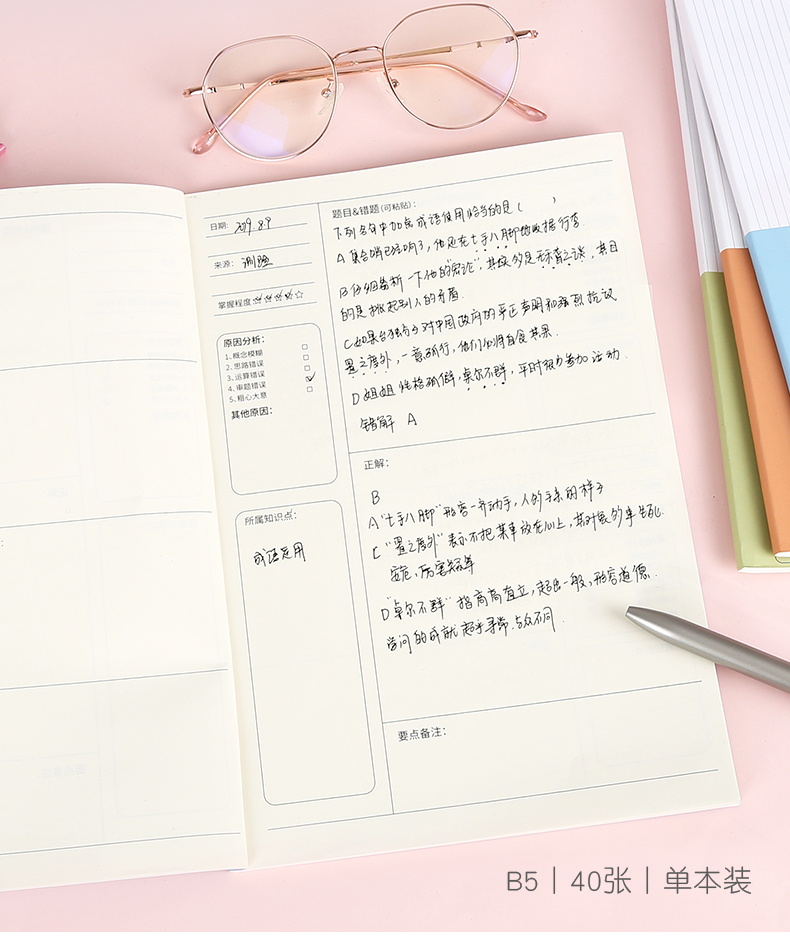 日期: 2019.8.9
来源: 测验
掌握程度:☆☆☆☆☆
原因分析:
1、概念模糊 □
2、思路错误 □
3、运算错误 □
4、审题错误 ✓
5、粗心大意 □
其他原因:
所属知识点:
成语运用
题目&错题(可粘贴):
下列各句中加点成语使用恰当的是( )
A 集合哨已经响了, 他还在七手八脚地收拾行李
B 仔细番析一下他的"宏论", 其实多是无稽之谈, 其目
的是挑起别人的矛盾.
C 如果台独分子对中国政府的严正声明和强烈抗议
置之度外, 一意孤行, 他们必将自食其果.
D 姐姐性格孤僻, 卓尔不群, 平时很少参加活动.
错解 A
正解:
B
A "七手八脚"形容一齐动手, 人多手杂的样子
C "置之度外"表示不把某事放在心上, 某对象多半生死
安危, 厉害
D "卓尔不群"指高高直立, 超出一般, 形容道德.
学问的成就超乎寻常.与众不同.
要点备注:
B5 | 40张 | 单本装